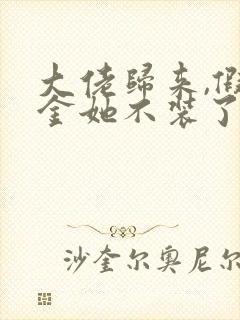 大佬归来,假
金她不装了
沙奎尔奥尼尔